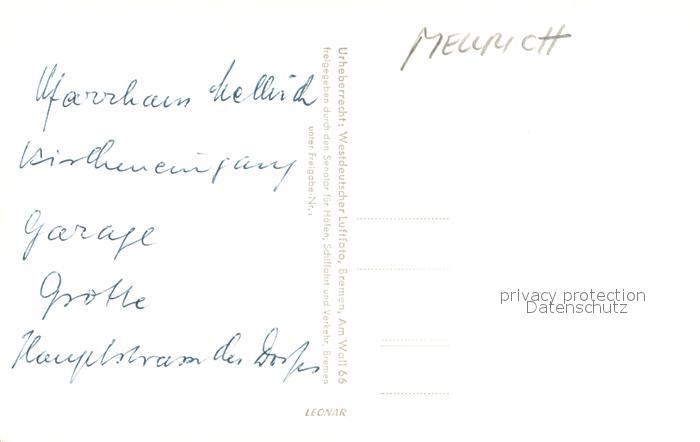 MELLRICH
Pfarrhaus Mellrich
Kircheneingang
Garage
Grotte
Hauptstrasse des Dorfes
Urheberrecht: Westdeutscher Luftfoto, Bremen, Am Wall 66
freigegeben durch den Senator für Häfen, Schiffahrt und Verkehr, Bremen
unter Freigabe-Nr.:
LEONAR
privacy protection
Datenschutz